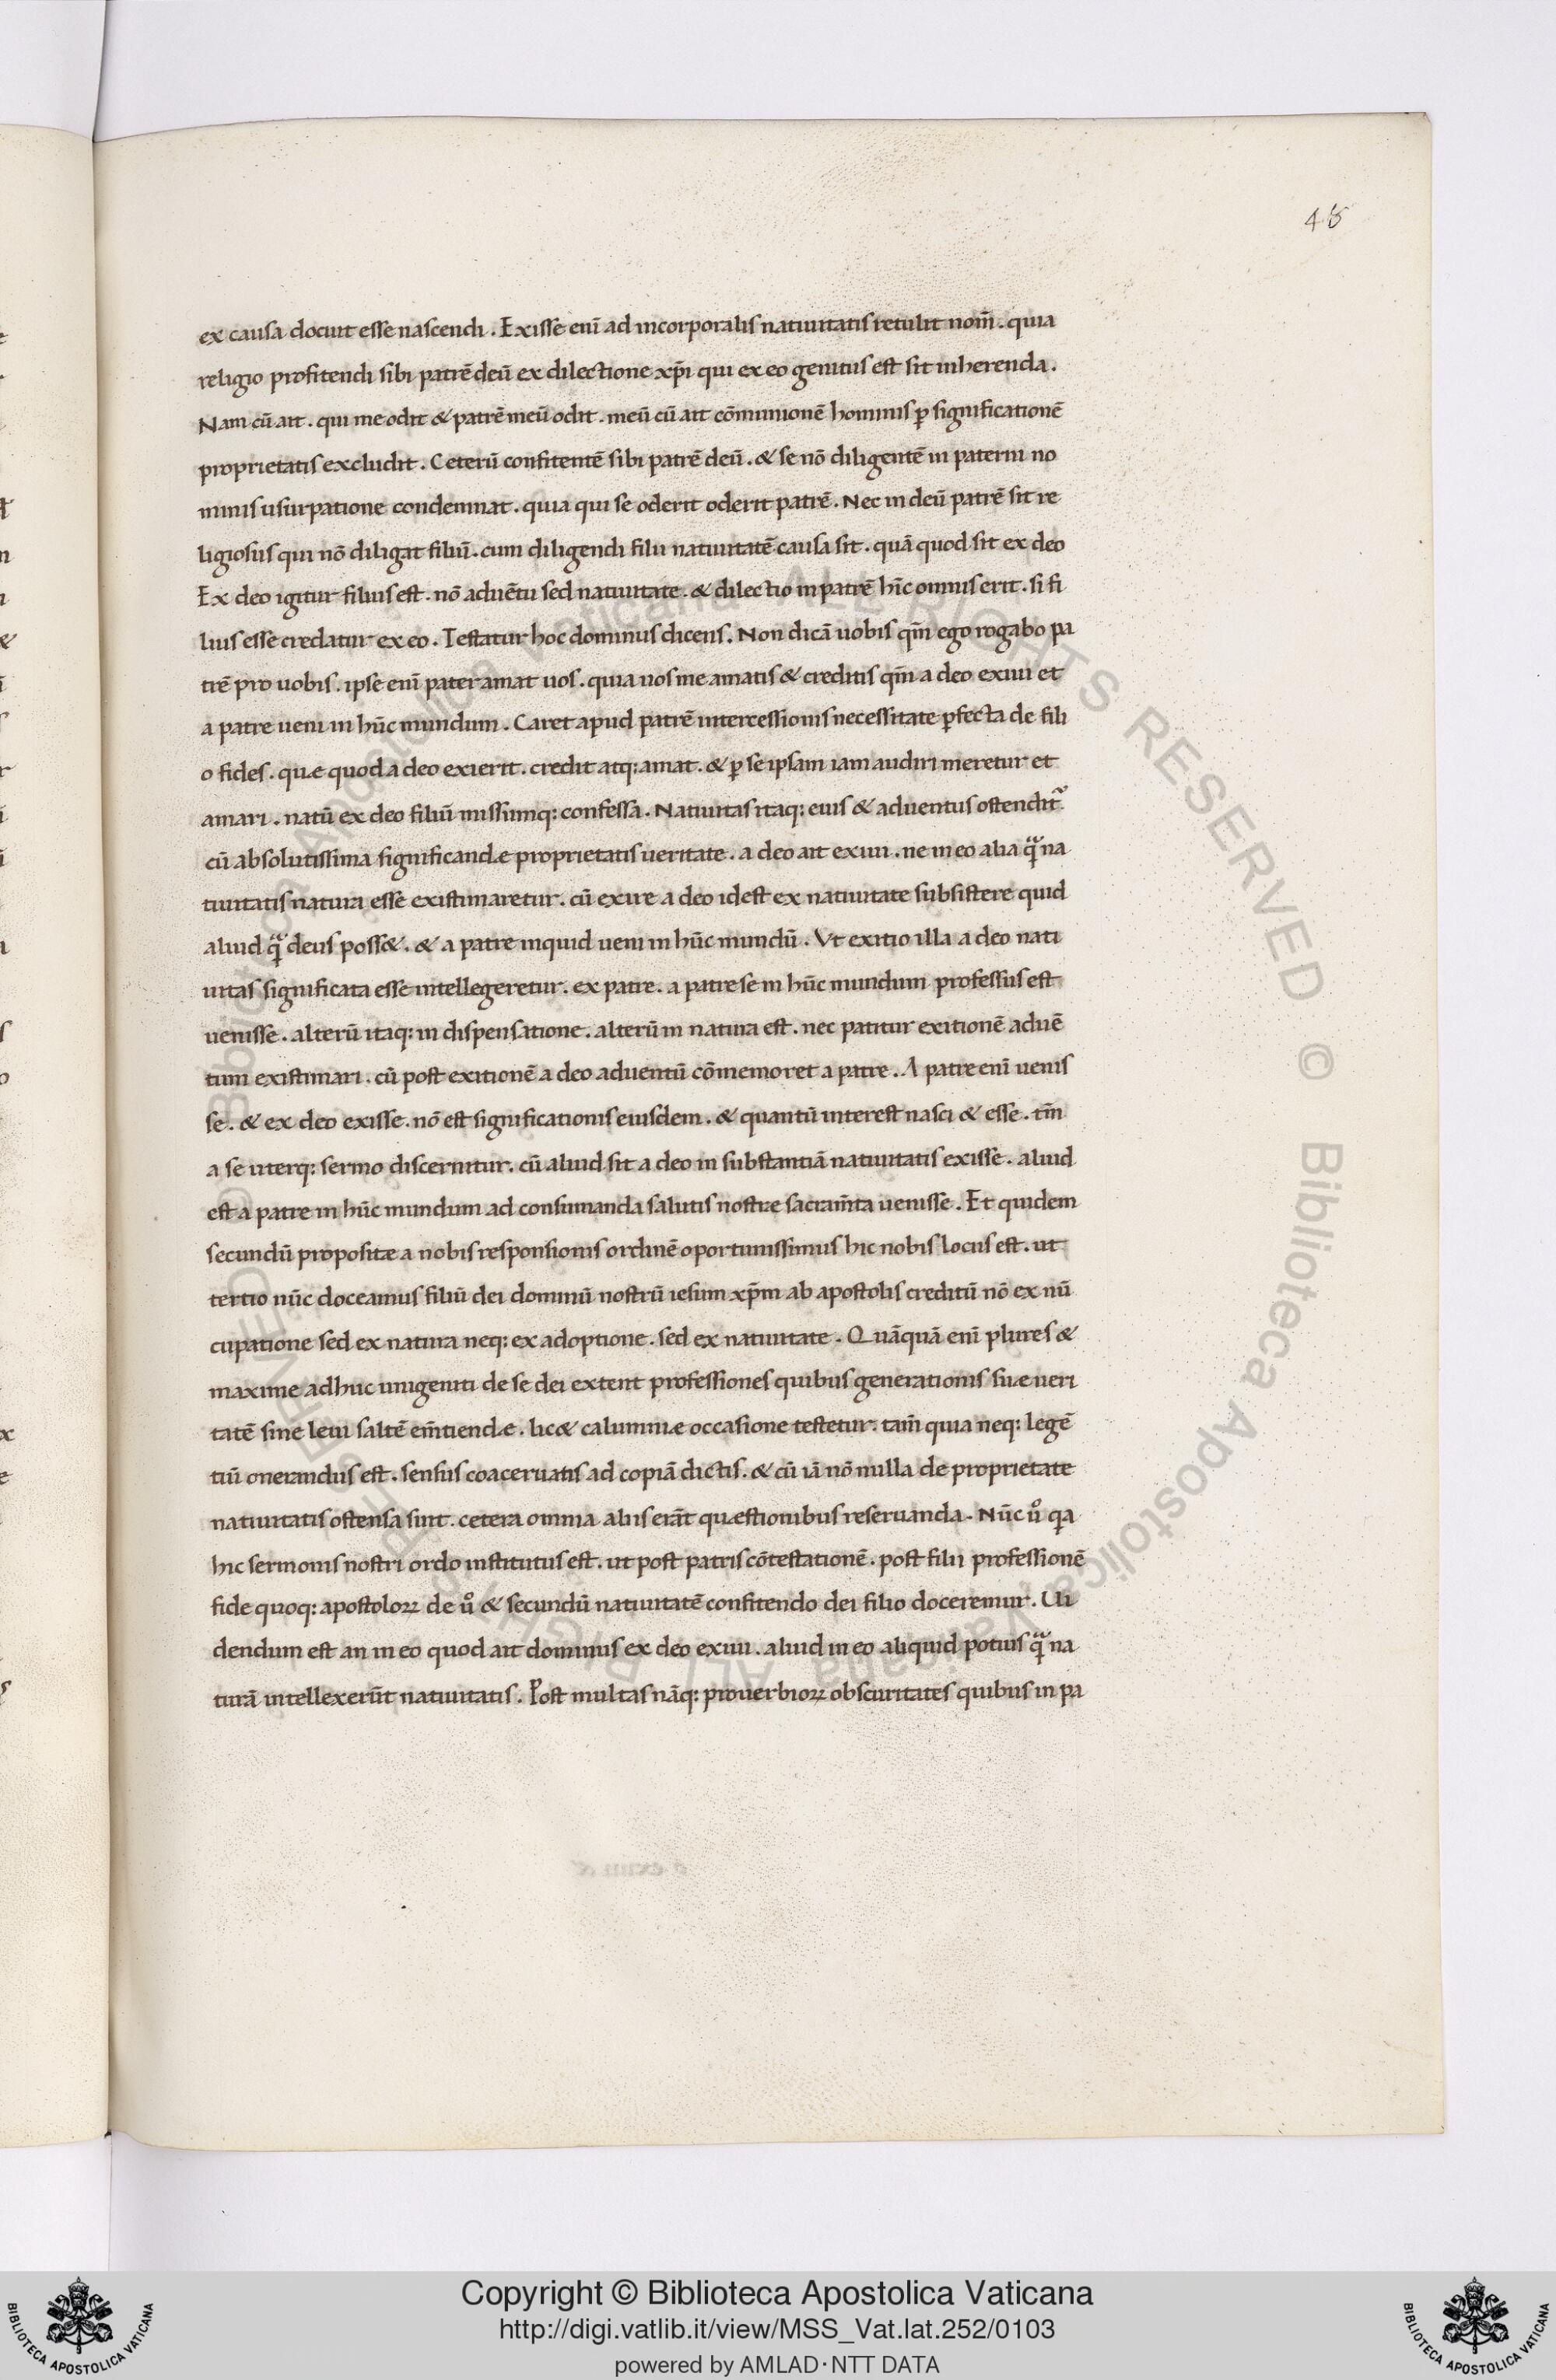 48
ex causa docuit esse nascendi. Exisse enī ad incorporalis natiuitatis retulit nom̄. quia
religio profitendi sibi patrē deū ex dilectione xp̄i qui ex eo genitus est sit inherenda.
Nam cū ait. qui me odit & patrē meū odit. meū cū ait cōmunionē hominis ꝑ significationē
proprietatis excludit. Ceterū confitentē sibi patrē deū. & se nō diligentē in paterni no
minis usurpatione condemnat. quia qui se oderit oderit patrē. Nec in deū patrē sit re
ligiosus qui nō diligat filiū. cum diligendi filii natiuitatē causa sit. quā quod sit ex deo
Ex deo igitur filius est. nō aduētu sed natiuitate. & dilectio in patrē hīc omnis erit. si fi
lius esse credatur ex eo. Testatur hoc dominus dicens. Non dicā uobis qm̄ ego rogabo pa
trē pro uobis. ipse enī pater amat uos. quia uos me amatis & creditis qm̄ a deo exiui et
a patre ueni in hūc mundum. Caret apud patrē intercessionis necessitate ꝑfecta de fili
o fides. quæ quod a deo exierit. credit atq: amat. & ꝑ se ipsam iam audiri meretur et
amari. natū ex deo filiū missumq: confessa. Natiuitas itaq: eius & aduentus ostendit᷑
cū absolutissima significandæ proprietatis ueritate. a deo ait exiui. ne in eo alia qᷓ na
tiuitatis natura esse existimaretur. cū exire a deo idest ex natiuitate subsistere quid
aliud qᷓ deus poss&. & a patre inquid ueni in hūc mundū. Ut exitio illa a deo nati
uitas significata esse intellegeretur. ex patre. a patre se in hūc mundum professus est
uenisse. alterū itaq: in dispensatione. alterū in natura est. nec patitur exitionē aduē
tum existimari. cū post exitionē a deo aduentū cōmemoret a patre. A patre enī uenis
se. & ex deo exisse. nō est significationis eiusdem. & quantū interest nasci & esse. tm̄
a se uterq: sermo discernitur. cū aliud sit a deo in substantiā natiuitatis exisse. aliud
est a patre in hūc mundum ad consumanda salutis nostræ sacram̄ta uenisse. Et quidem
secundū propositæ a nobis responsionis ordinē oportunissimus hic nobis locus est. ut
tertio nūc doceamus filiū dei dominū nostrū iesum xp̄m ab apostolis creditū nō ex nū
cupatione sed ex natura neq: ex adoptione. sed ex natiuitate. Quāquā enī plures &
maxime adhuc unigeniti de se dei extent professiones quibus generationis suæ ueri
tatē sine leui saltē em̄tiendæ. lic& calumniæ occasione testetur. tam̄ quia neq: legē
tiū onerandus est. sensus coaceruatis ad copiā dictis. & cū iā nō nulla de proprietate
natiuitatis ostensa sint. cetera omnia aliis erāt quæstionibus reseruanda. Nūc uͦ qa
hic sermonis nostri ordo institutus est. ut post patris cōtestationē. post filii professionē
fide quoq: apostoloꝝ de uͦ & secundū natiuitatē confitendo dei filio doceremur. Ui
dendum est an in eo quod ait dominus ex deo exiui. aliud in eo aliquid potius qᷓ na
turā intellexerūt natiuitatis. Post multas nāq: prouerbioꝝ obscuritates quibus in pa
Copyright © Biblioteca Apostolica Vaticana
http://digi.vatlib.it/view/MSS_Vat.lat.252/0103
powered by AMLAD·NTT DATA